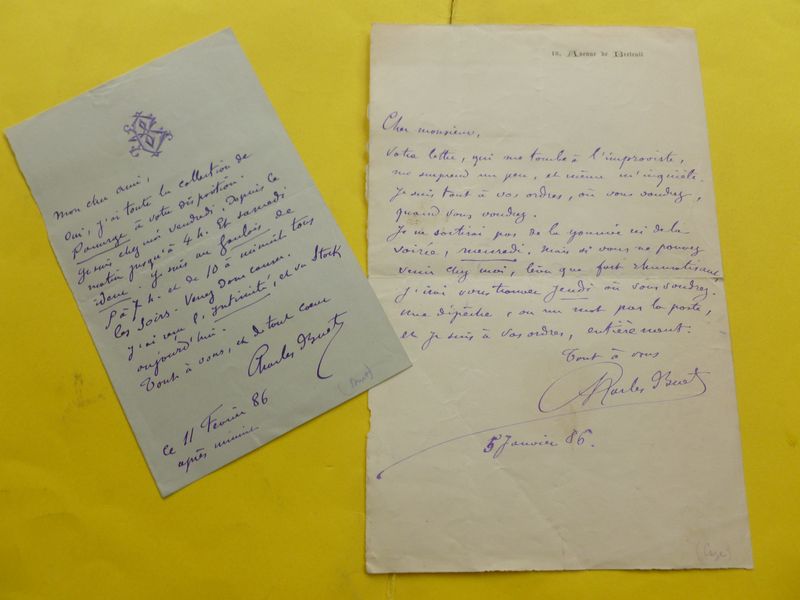 Mon cher ami,
Oui, j'ai toute la collection de
Panurge à votre disposition.
Je suis chez moi vendredi, depuis le
matin jusqu'à 4 h. Et samedi
idem. Je suis au Gaulois de
5 à 7 h. et de 10 à minuit tous
les soirs. Venez donc causer.
J'ai reçu l'Intimité, et vu Stock
aujourd'hui.
Tout à vous, et de tout cœur
Charles Buet
(Buet)
ce 11 Février 86
après minuit
18, Avenue de Breteuil
Cher monsieur,
Votre lettre, qui me tombe à l'improviste,
me surprend un peu, et même m'inquiète.
Je suis tout à vos ordres, où vous voudrez,
quand vous voudrez.
Je ne sortirai pas de la journée ni de la
soirée, mercredi. Mais si vous ne pouvez
venir chez moi, bien que fort rhumatisant,
j'irai vous trouver jeudi où vous voudrez.
Une dépêche, ou un mot par la poste,
et je suis à vos ordres, entièrement.
Tout à vous
Charles Buet
5 Janvier 86.